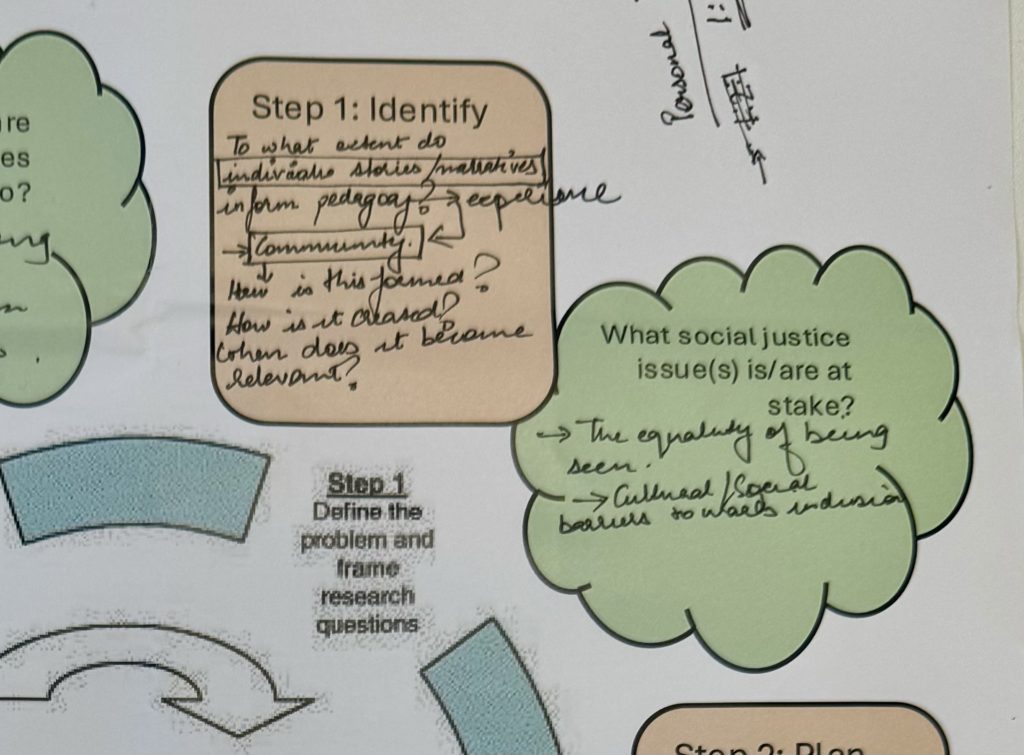 re
es
o?
Step 1: Identify
To what extent do
individuals stories/narratives
inform pedagogy? → experience
→ Community.
How is this formed?
How is it created?
When does it become
relevant?
Personal
What social justice
issue(s) is/are at
stake?
→ The equality of being
seen.
→ Cultural/Social
barriers towards inclusion
Step 1
Define the
problem and
frame
research
questions
Step 2: Plan